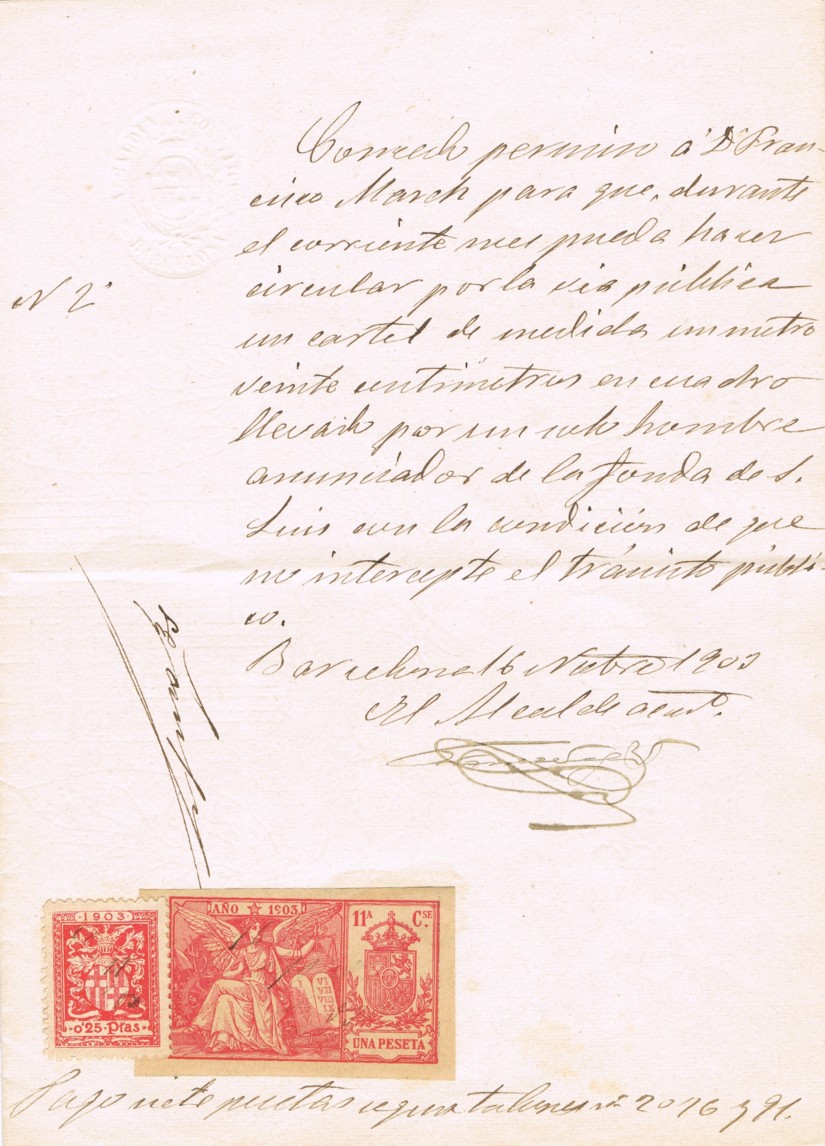 Concedo permiso á Dn Fran-
cisco March para que, durante
el corriente mes pueda hacer
circular por la via pública
un cartel de medida un metro
veinte centimetros en cuadro
llevado por un solo hombre
anunciador de la fonda de S.
Luis con la condición de que
no intercepte el tránsito públi-
co.
N 2º
Barcelona 16 Novbre 1903
El Alcalde acctl.
1903
0'25 Ptas
AÑO 1903
11ª Cse
VI
VII
VIII
IX
UNA PESETA
Pago siete pesetas segun talones nº 2096 y 91.